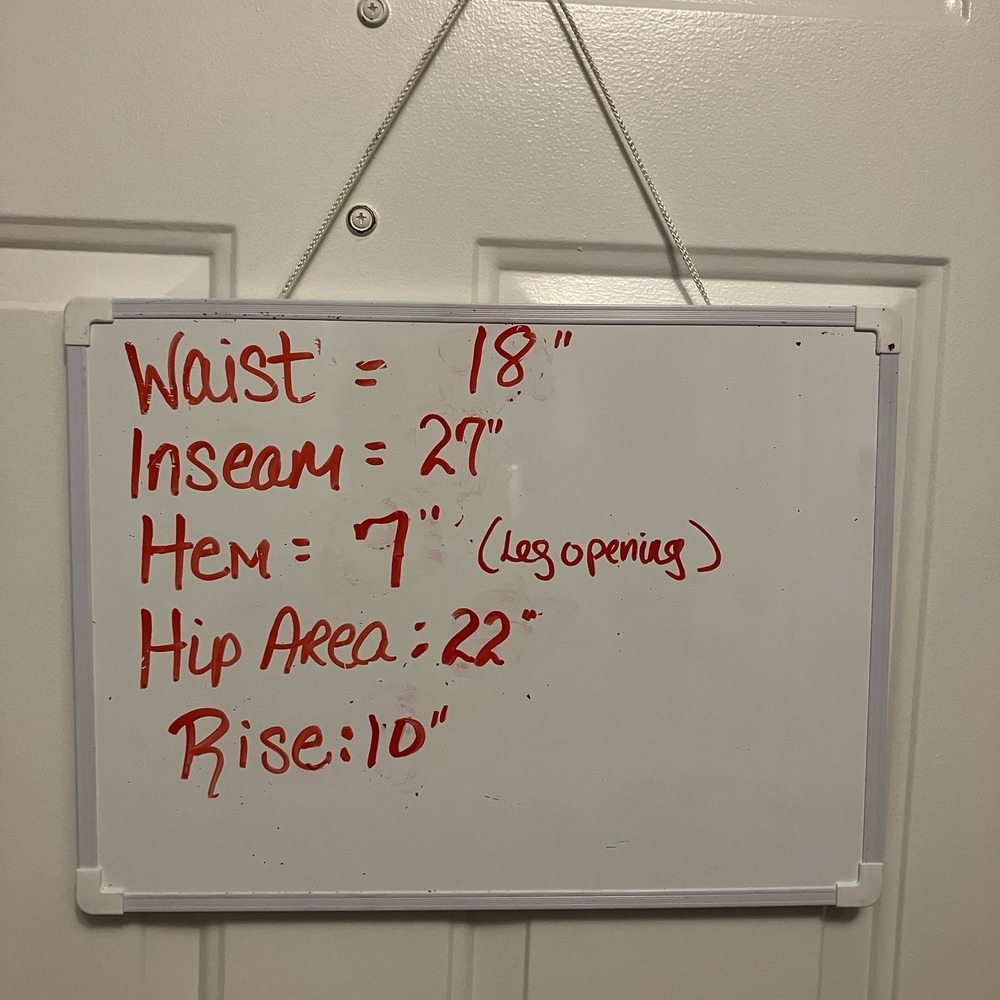 Waist = 18"
Inseam = 27"
Hem = 7" (Leg opening)
Hip Area: 22"
Rise: 10"